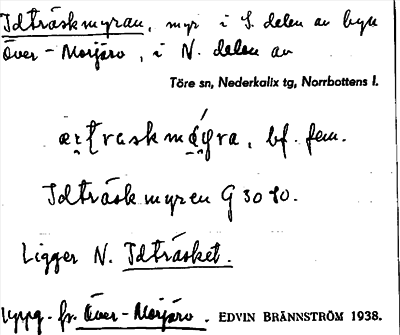 Idträskmyran, myr i S. delen av byn
Över-Morjärv, i N. delen av
Töre sn, Nederkalix tg, Norrbottens l.
bf. fem.
Idträskmyren G 30 80.
Ligger N. Idträsket.
Uppg. fr. Över-Morjärv. EDVIN BRÄNNSTRÖM 1938.